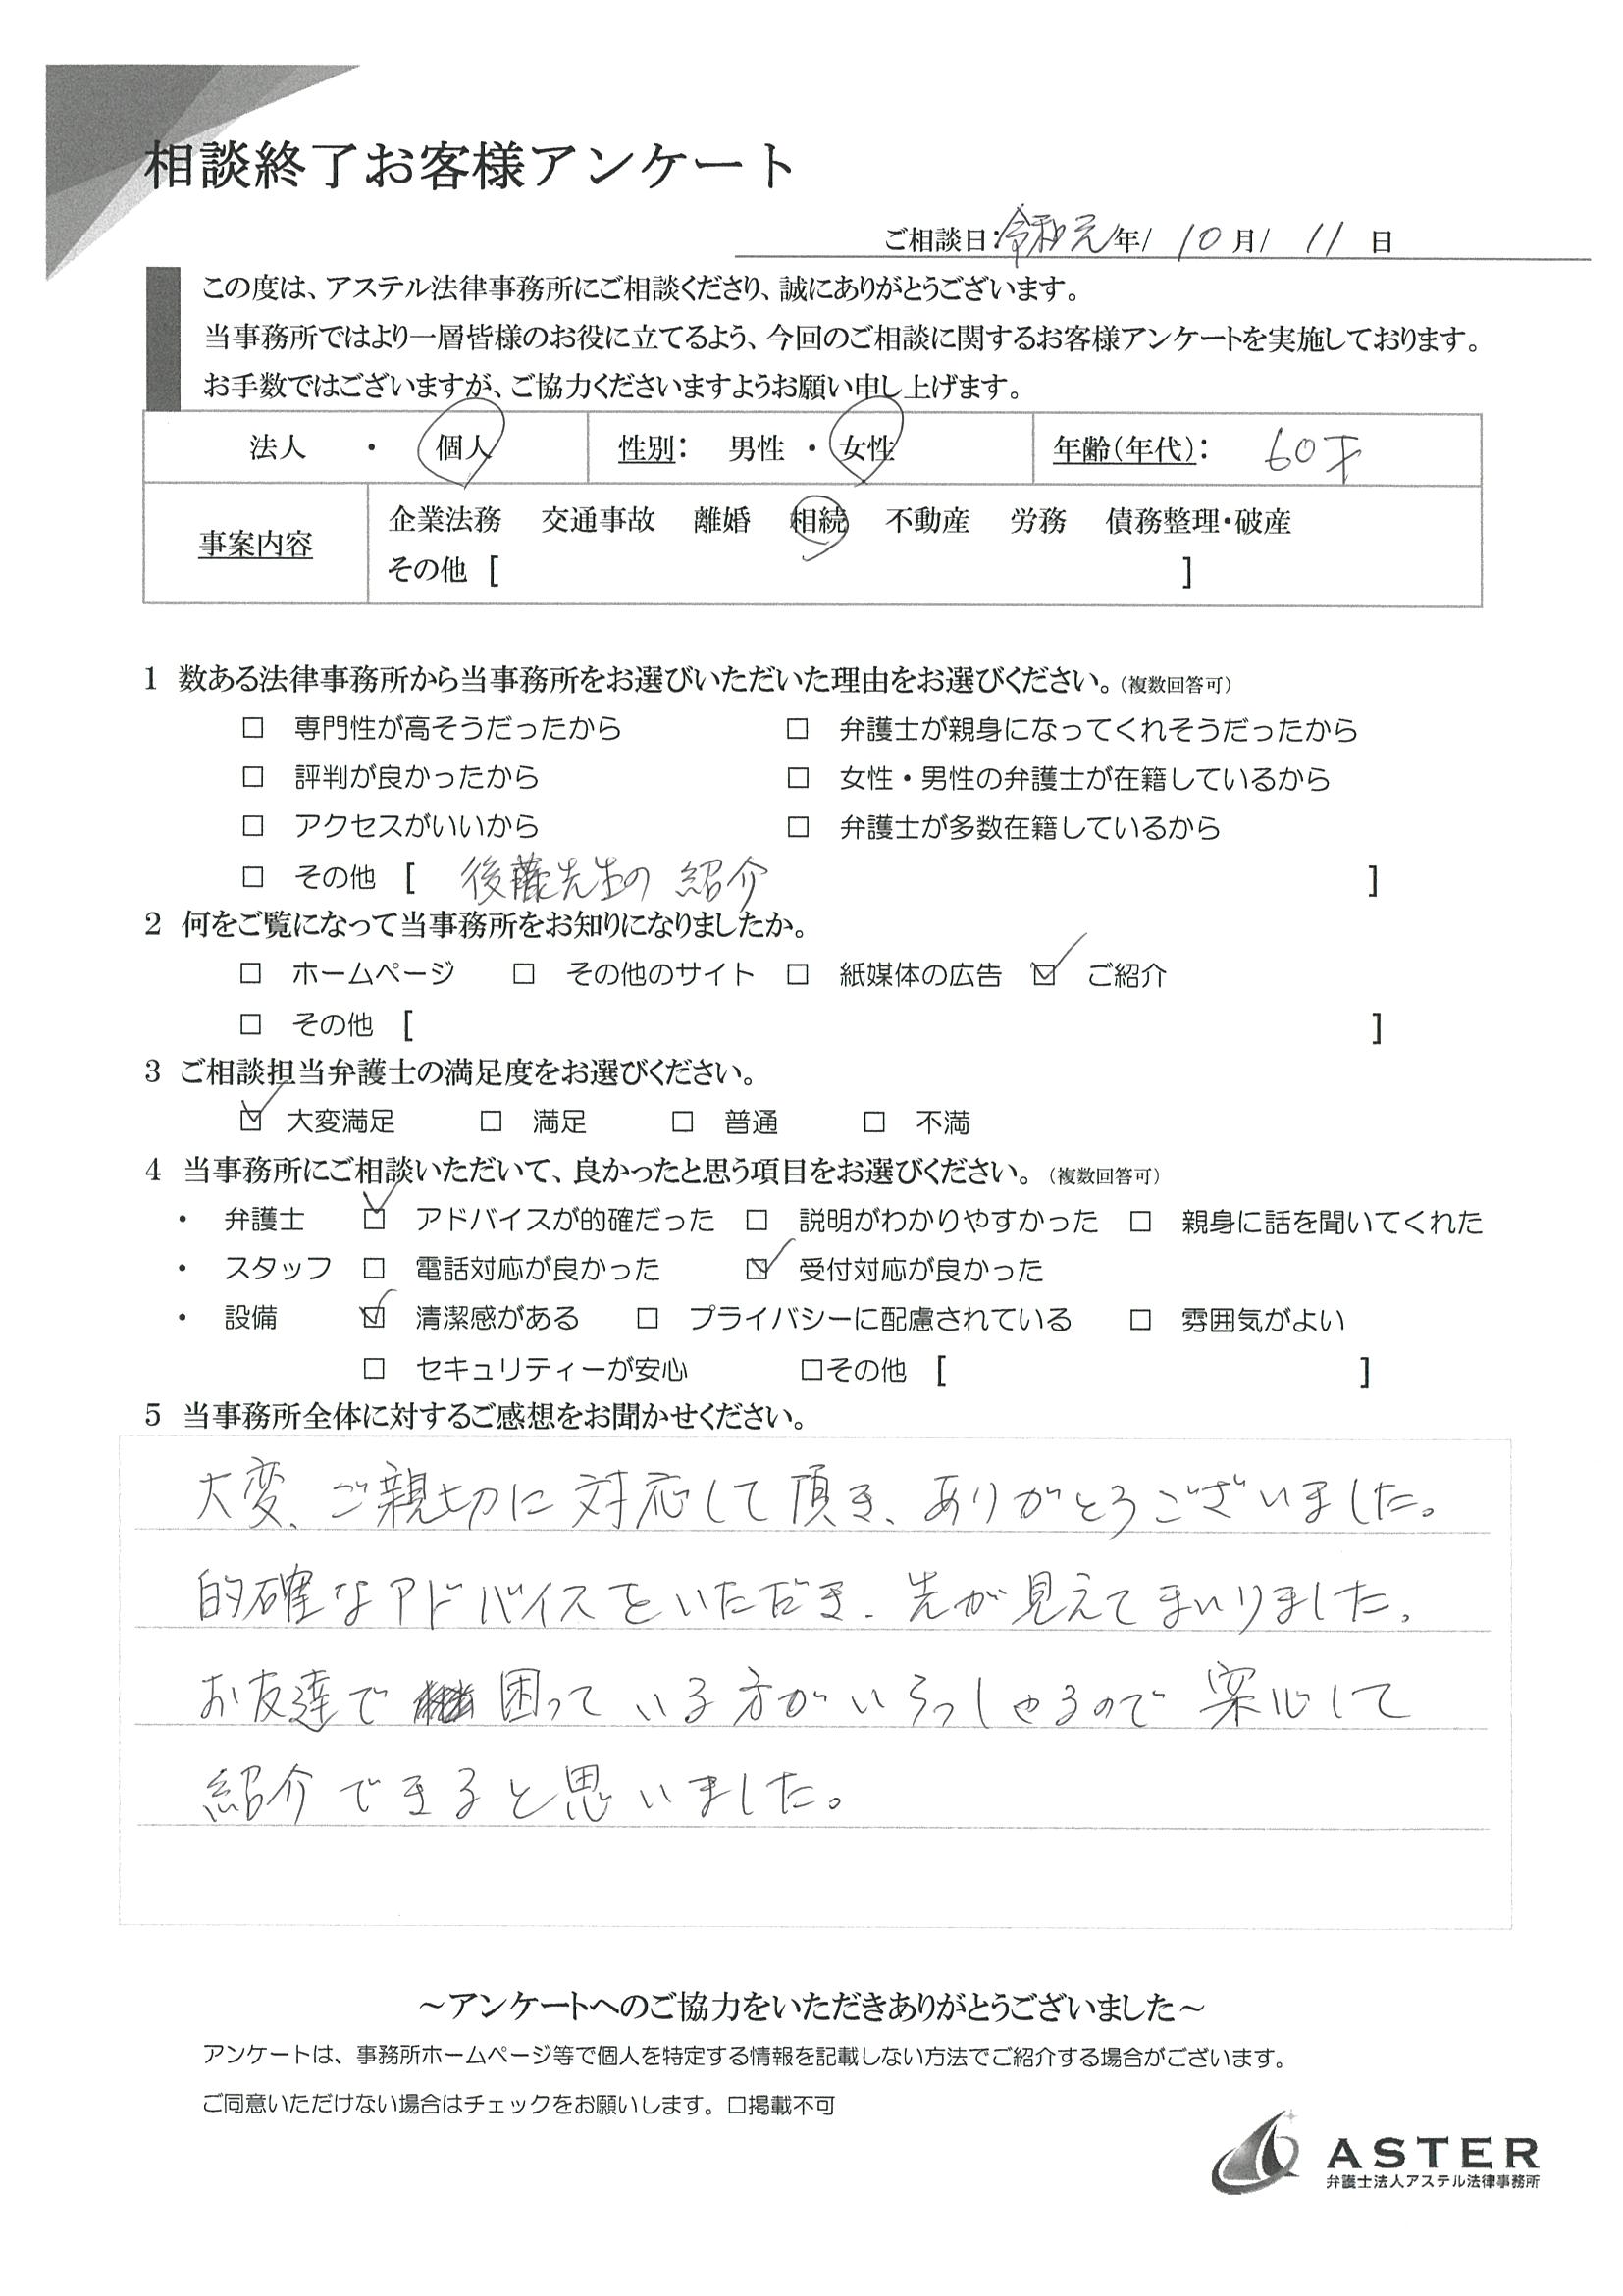 相談終了お客様アンケート
ご相談日:令和元年/10月/11日
この度は、アステル法律事務所にご相談くださり、誠にありがとうございます。
当事務所ではより一層皆様のお役に立てるよう、今回のご相談に関するお客様アンケートを実施しております。
お手数ではございますが、ご協力くださいますようお願い申し上げます。
法人 ・ 個人 性別: 男性 ・ 女性 年齢(年代): 60才
事案内容
企業法務 交通事故 離婚 相続 不動産 労務 債務整理・破産
その他 [ ]
1 数ある法律事務所から当事務所をお選びいただいた理由をお選びください。(複数回答可)
□ 専門性が高そうだったから □ 弁護士が親身になってくれそうだったから
□ 評判が良かったから □ 女性・男性の弁護士が在籍しているから
□ アクセスがいいから □ 弁護士が多数在籍しているから
□ その他 [ 後藤先生の紹介 ]
2 何をご覧になって当事務所をお知りになりましたか。
□ ホームページ □ その他のサイト □ 紙媒体の広告 ☑ ご紹介
□ その他 [ ]
3 ご相談担当弁護士の満足度をお選びください。
☑ 大変満足 □ 満足 □ 普通 □ 不満
4 当事務所にご相談いただいて、良かったと思う項目をお選びください。(複数回答可)
・ 弁護士 ☑ アドバイスが的確だった □ 説明がわかりやすかった □ 親身に話を聞いてくれた
・ スタッフ □ 電話対応が良かった ☑ 受付対応が良かった
・ 設備 ☑ 清潔感がある □ プライバシーに配慮されている □ 雰囲気がよい
□ セキュリティーが安心 □その他 [ ]
5 当事務所全体に対するご感想をお聞かせください。
大変、ご親切に対応して頂き、ありがとうございました。
的確なアドバイスをいただき、先が見えてまいりました。
お友達で困っている方がいらっしゃるので安心して
紹介できると思いました。
～アンケートへのご協力をいただきありがとうございました～
アンケートは、事務所ホームページ等で個人を特定する情報を記載しない方法でご紹介する場合がございます。
ご同意いただけない場合はチェックをお願いします。□掲載不可
ASTER
弁護士法人アステル法律事務所